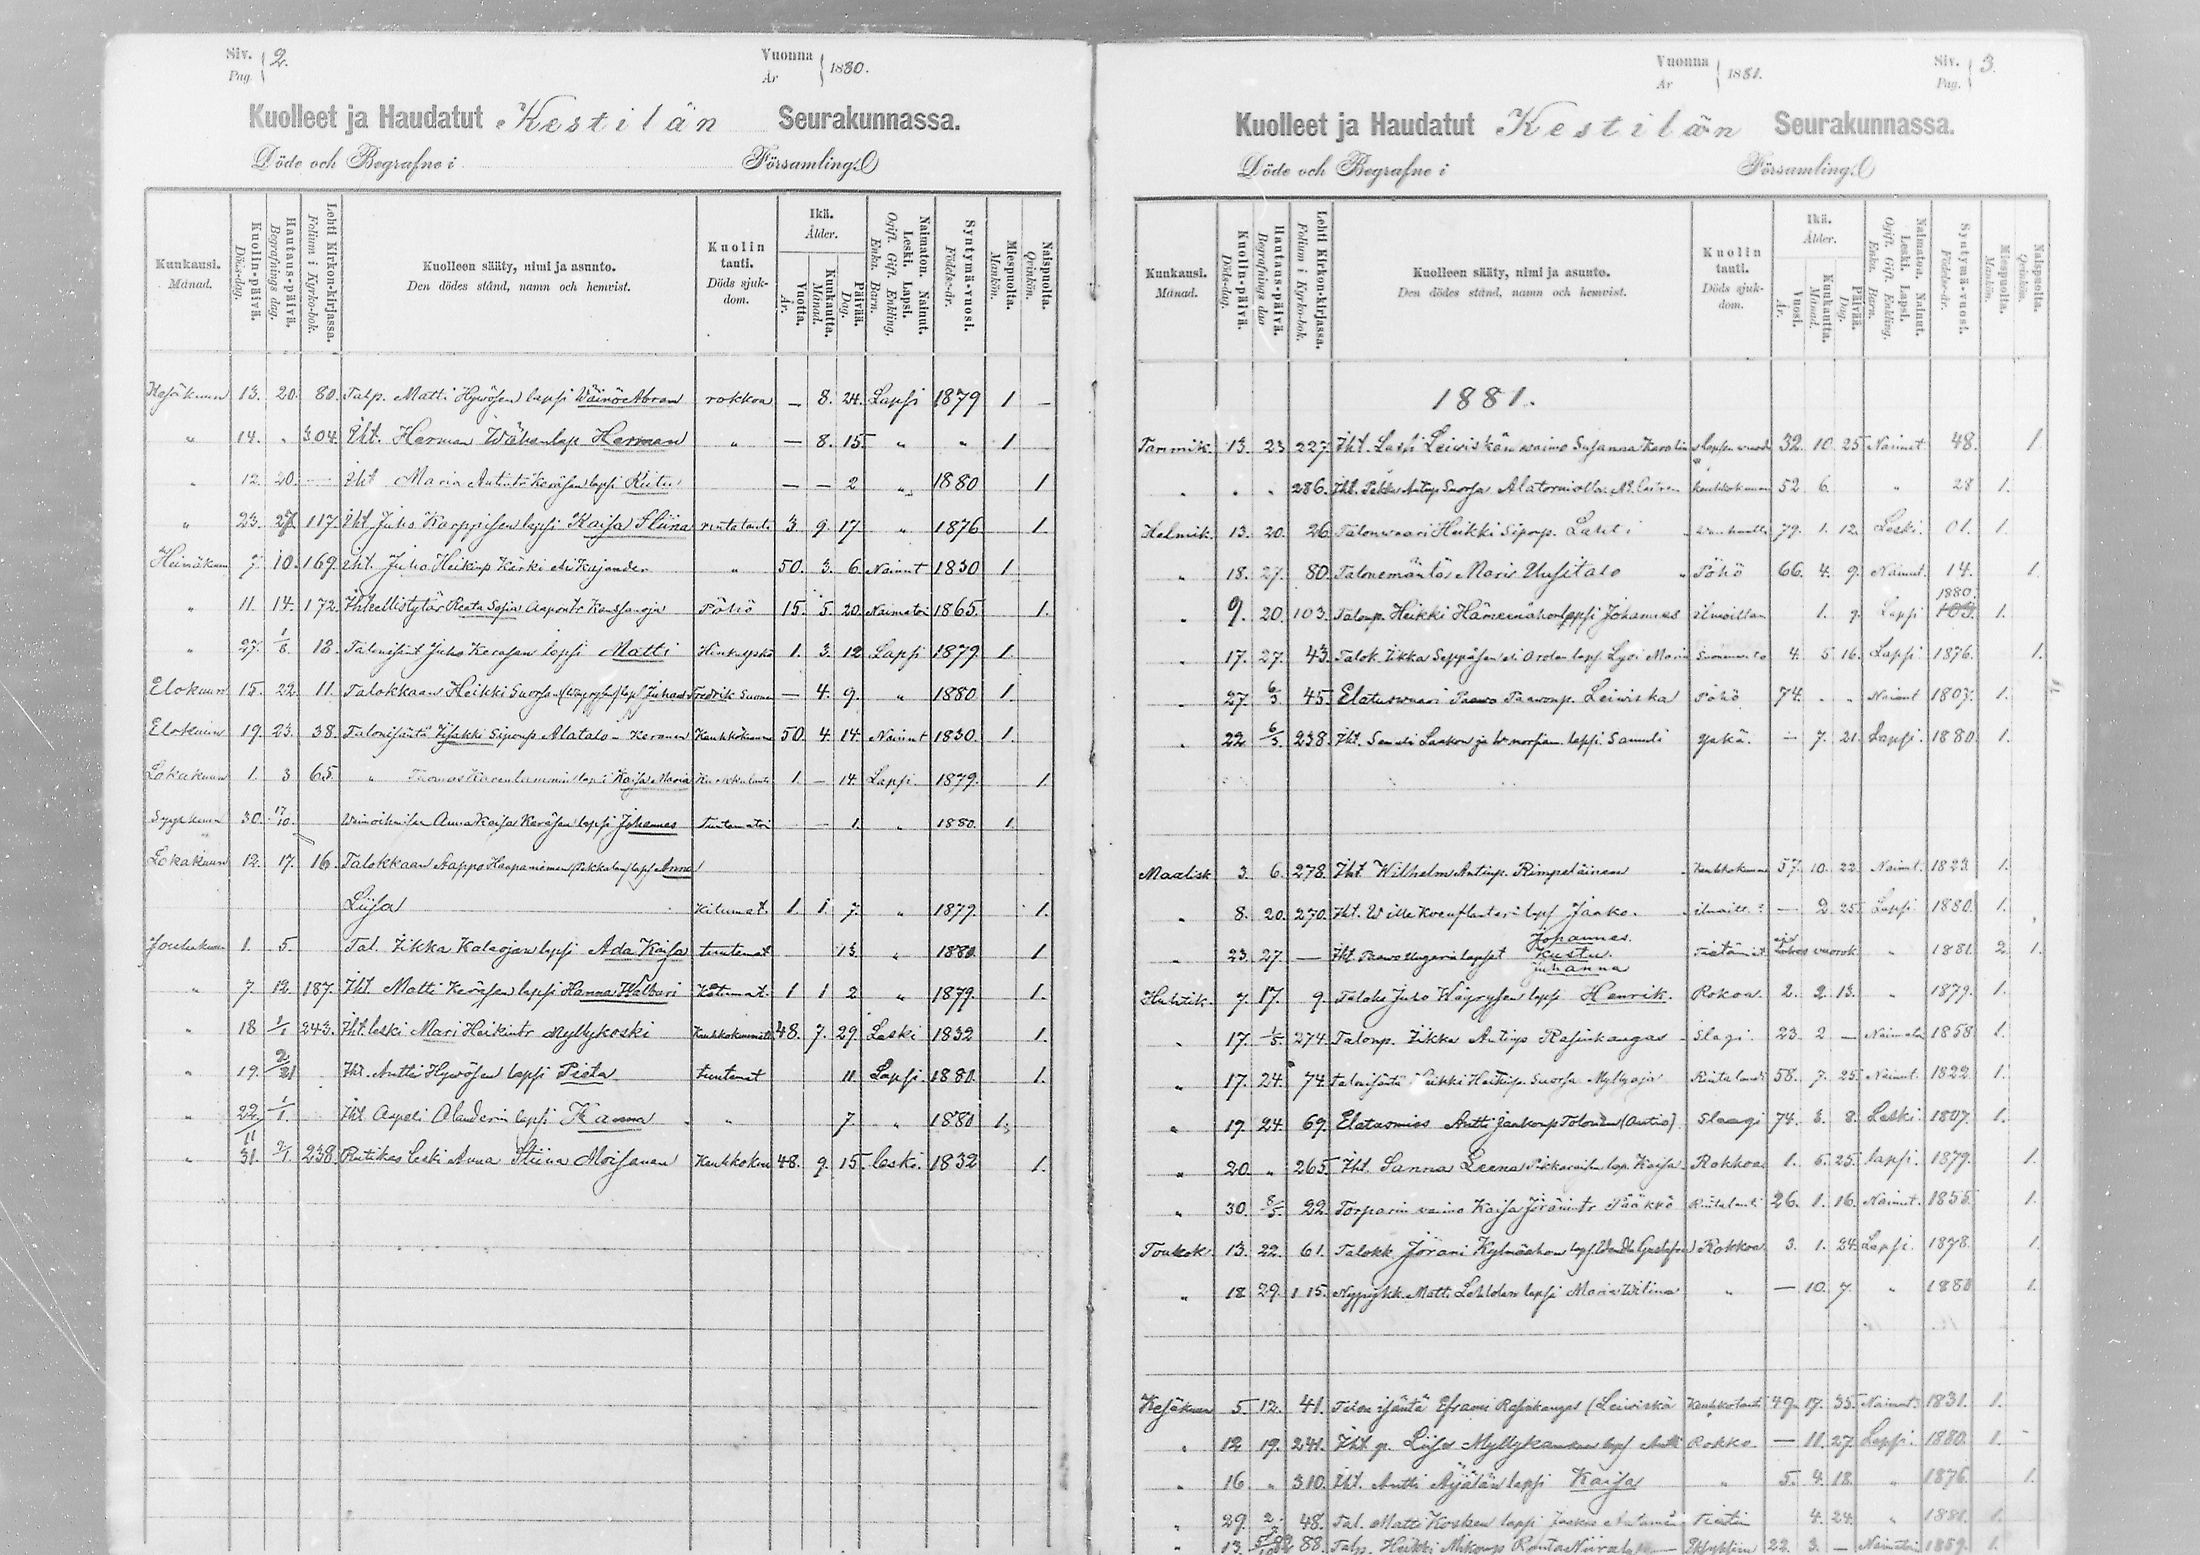 Siv. Pag. 2.
Vuonna År 1880.
Kuolleet ja Haudatut Kestilän Seurakunnassa.
Döde och Begrafne i Församling.
Kuukausi. Månad.
Kuolin-päivä. Döds-dag.
Hautaus-päivä. Begrafnings dag.
Lehti Kirkon-kirjassa. Folium i Kyrko-bok.
Kuolleen sääty, nimi ja asunto.
Den dödes stånd, namn och hemvist.
Kuolin tauti. Döds sjukdom.
Ikä. Ålder.
Vuotta. År.
Kuukautta. Månad.
Päivää. Dag.
Naimaton. Nainut. Leski. Lapsi. Ogift. Gift. Enkling. Enka. Barn.
Syntymä-vuosi. Födelse-år.
Miespuolta. Mankön.
Naispuolta. Qvinkön.
Kesäkuun 13. 20. 80. Talp. Matti Hyvösen lapsi Wäinö Abram rokkoa — 8. 24. Lapsi 1879 1 —
" 14. " 304. Iht. Herman Wähän lap. Herman " — 8. 15 " " 1
" 12. 20. — Iht Maria Antintr Keräsen lapsi — — 2 " 1880 1
" 23. 27 117 Iht Juho Karppisen lapsi Kaisa Stiina rintatauti 3 9. 17 " 1876 1.
Heinäkuun 7. 10. 169. Iht. Juho Heikinp Kärki eli Kajander " 50. 3. 6. Nainut 1830 1.
" 11. 14. 172. Itsellistytär Reeta Sofia Aapontr Kansanoja Pöhö 15. 5. 20. Naimatoin 1865. 1.
" 27. 1/8 18. Talonisänt Juho Kerasen lapsi Matti Hinkuyskä 1. 3. 12 Lapsi 1879 1.
Elokuun 15. 22. 11. Talokkaan Heikki Suorsan (Wäyrysen) lapsi Juhan Fredrik — 4. 9. " 1880 1.
Elokuun 19. 23. 38. Talonisäntä Iisakki Siponp Alatalo - Keranen Keuhkokuume 50. 4. 14. Nainut 1830. 1.
Lokakuun 1. 3 65. " lapsi Kaisa Maria 1. — 14. Lapsi 1879. 1.
Syyskuun 30. 17/10. Anna Kaisa Keräsen lapsi Johannes Tuntematoin — 1. " 1880. 1.
Lokakuun 12. 17. 16. Talokkaan Aappo Haapaniemen (Pekkalan) laps Anna
Liisa 1. 1. 7. " 1879. 1.
Joulukuun 1. 5. Tal. Iikka Kalaojan lapsi Ada Kaisa tuntemat 13. " 1880. 1
" 7. 12. 187. Iht. Matti Keräsen lapsi Hanna Walbori 1 1 2 " 1879. 1.
" 18 2/1 243. Iht leski Mari Heikintr Myllykoski Keuhkokuumet 48. 7. 29. Leski 1832 1.
" 19. 2/21 Iht. Antti Hyvösen lapsi Pieta tuntemat 11. Lapsi 1880. 1.
" 22 1/1. Iht Aapeli Olanderin lapsi " 7 " 1880 1.
" 31. 2/1. 238. Leski Anna Stiina Moisanen Keuhkokuu 48. 9. 15. leski. 1832 1.
Vuonna År 1881.
Siv. Pag. 3.
Kuolleet ja Haudatut Kestilän Seurakunnassa.
Döde och Begrafne i Församling.
Kuukausi. Månad.
Kuolin-päivä. Döds-dag.
Hautaus-päivä. Begrafnings dag
Lehti Kirkon-kirjassa. Folium i Kyrko-bok.
Kuolleen sääty, nimi ja asunto.
Den dödes stånd, namn och hemvist.
Kuolin tauti. Döds sjukdom.
Ikä. Ålder.
Vuosi. År.
Kuukautta. Månad.
Päivä. Dag.
Naimaton. Nainut. Leski. Lapsi. Ogift. Gift. Enkling. Enka. Barn.
Syntymä-vuosi. Födelse-år.
Miespuolta. Mankön.
Naispuolta. Qvinkön.
1881.
Tammik. 13. 23 227. Iht. Lassi Leiviskän vaimo Susanna Karolin 32. 10. 25 Nainut 48. 1.
" " " 286. Iht. Pekka Antinp Suorsa Keuhkokuume 52 6. " 28 1.
Helmik. 13. 20. 26. Talonvaari Heikki Siponp. Lahti 79. 1. 12. Leski. 01. 1.
" 18. 27. 80. Talonemäntä Maria Uusitalo Pöhö 66. 4. 9. Nainut. 14. 1.
" 9. 20. 103. Talonp. Heikki Hämeenahon lapsi Johannes 1. 9. Lapsi 1880. 1.
" 17. 27. 43. Talok. Iikka Seppäsen eli lapsi Maria 4. 5 16. Lapsi 1876. 1.
" 27. 6/3 45. Elatusvaari Paavo Paavonp. Leiviska Pöhö 74. " " Nainut 1807. 1.
" 22 6/3. 238. Iht. lapsi Samuli yskä. — 7. 21. Lapsi. 1880. 1.
Maalisk. 3. 6. 278. Iht. Wilhelm Antinp. Rimpeläinen Keuhkokuume 57. 10. 22. Nainut. 1823. 1.
" 8. 20. 270. Iht. Wille lapsi Jaako. — 2 25. Lapsi 1880. 1.
" 23. 27. — Iht. Paavo lapset Johannes. Kustu. Juhanna " 1881. 2. 1.
Huhtik. 7. 17. 9. Taloka Juho Wäyrysen lapsi Henrik. Rokoa. 2. 2 13. " 1879. 1.
" 17. 1/5 274. Talonp. Iikka Antinp Rasinkangas Slagi. 23 2 — 1858 1.
" 17. 24. 74. talonisäntä Heikki Heikinp. Suorsa Myllyoja Rintatauti 58. 7. 25. Nainut. 1822 1.
" 19. 24. 69. Elatusmies Antti Jaakonp Tolonen (Autio) Slaagi 74. 3. 8. Leski. 1807. 1.
" 20. " 265. Iht. Sanna Leena lap. Kaisa Rokkoa 1. 5. 25. lapsi. 1879. 1.
" 30. 8/5. 22. Torparin vaimo Kaisa Pääkkö Rintatauti 26. 1. 16. Nainut. 1855. 1.
Toukok. 13. 22. 61. Talokk Jörani Kylmäahon lapsi Rokkoa 3. 1. 24. Lapsi. 1878. 1.
" 18. 29. 115. Matti lapsi Maria Wilina " — 10. 7. " 1880 1.
Kesäkuun 5. 12. 41. Talon isäntä Efraimi Rasinkangas (Leiviskä Keuhkotauti 49. 17. 35. Nainut. 1831. 1.
" 12 19. 241. Iht p. Liisa Myllykankaan laps Antti Rokko — 11. 27. Lapsi. 1880. 1.
" 16 " 310. Iht. Antti Äijälän lapsi Kaisa " 5. 4. 18. " 1876. 1.
" 29. 48. Tal. Matti Kosken lapsi 4. 24. " 1881. 1.
" 13. 88. Talp. Heikki 22. 3. — 1859. 1.